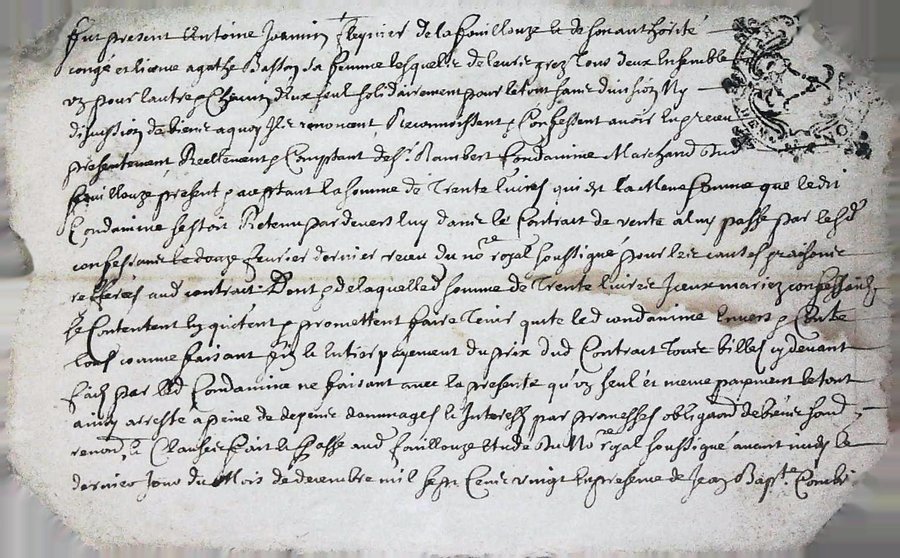 fut present Antoine Joannin flequier de la fouillouze & de son authorité
congé et licence agathe Basson sa femme lesquelz de leurs grez tous deux ensemble
un pour lautre & chacun deux seul solidairement pour le tout sans division Ny
discussion de biens a quoy Ilz renoncent, Reconnoissent & Confessent avoir eu & receu
presentement Reellement & Comptant de sr. Rambert Condamine Marchand dud
fouillouze present & acceptant la somme de Trente livres qui est la Mene somme que ledit
Condamine sestoit Retenu par devers luy dans le Contrat de vente a luy passé par lesd
confessans le douze fevrier dernier receu du nore royal soussigné pour les causes & raisons
referées aud contrat Dont & de laquelle d somme de Trente livres Iceux mariez confessants
se Contentent len quittent & promettent faire Tenir quite led condamine Envers & Contre
tous comme faisant fin & Entier payement du prix dud Contract Tous billes cy devant
faits par led Condamine ne faisant avec la presente qu'un seul et meme payement le tout
ainsy arresté a peine de depens dommages & Interestz par promesses obligaon de biens
renon, & Clauses fait & Passé aud fouillouze Etude du Nore royal soussigné avant midy le
dernier Jour du Mois de decembre mil sept Cens vingt En presence de Jean Bapte. Combe